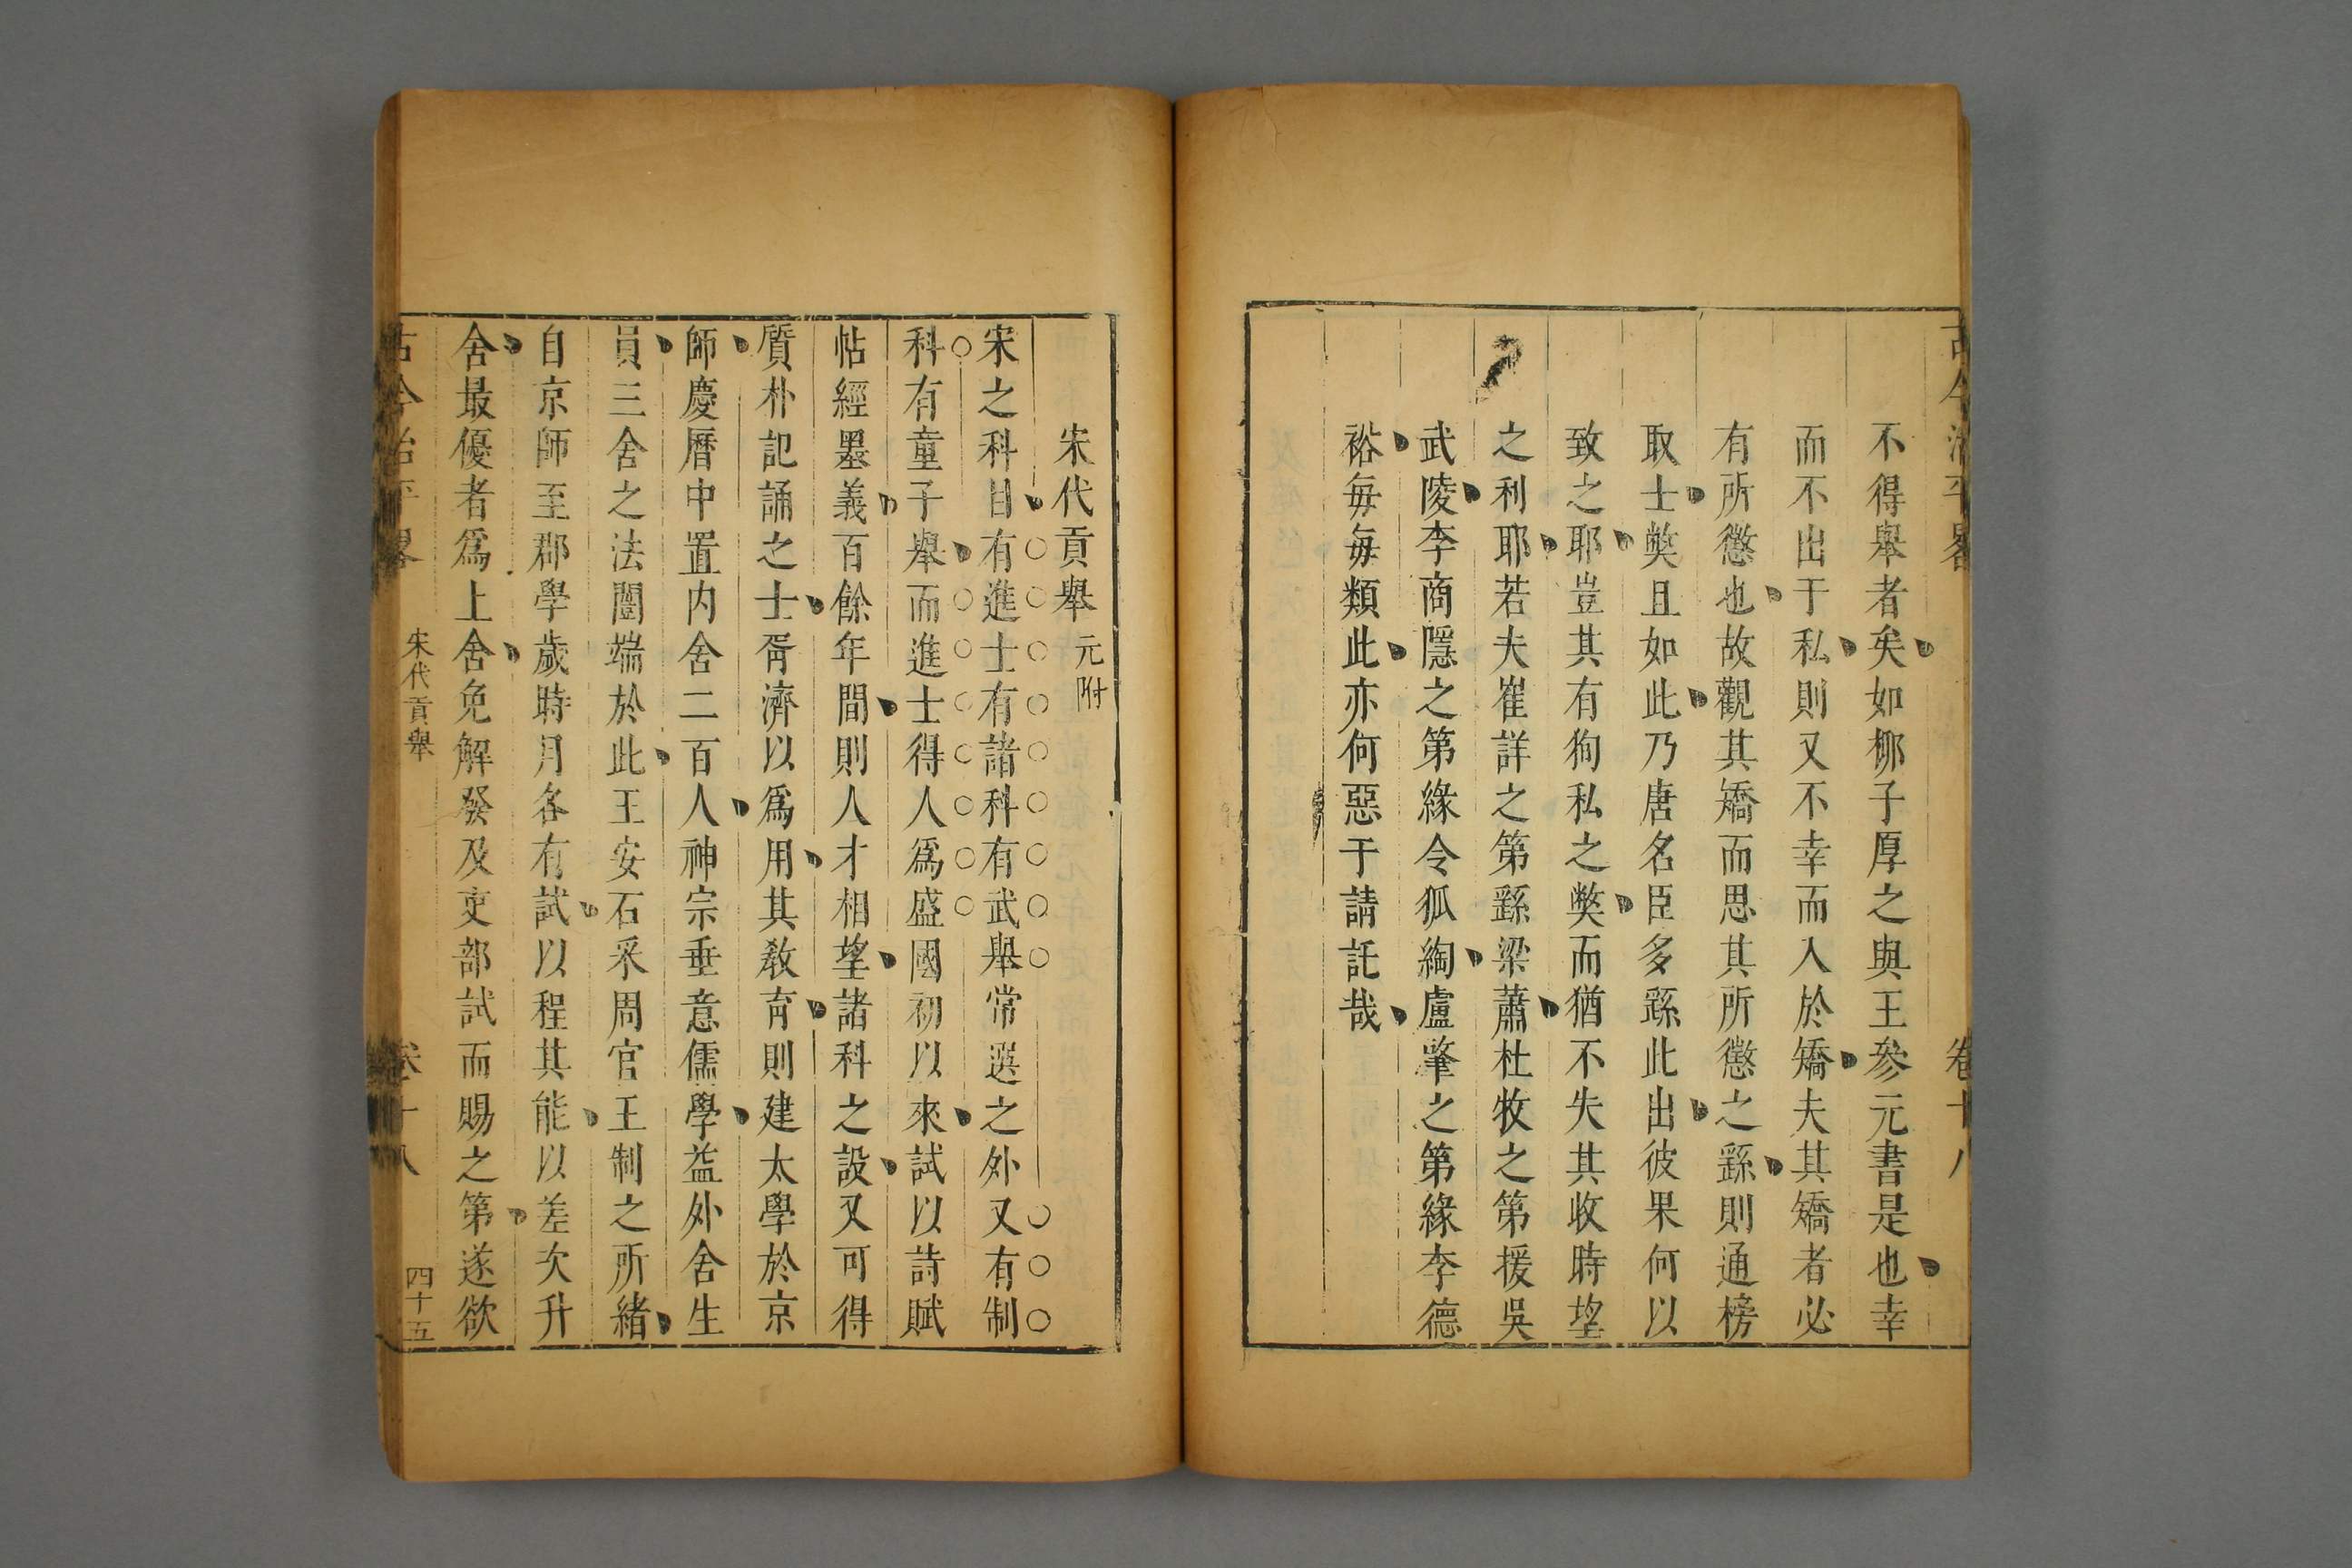 古今治平畧 卷十八
不得舉者矣如柳子厚之與王參元書是也幸
而不出于私則又不幸而入於矯夫其矯者必
有所懲也故觀其矯而思其所懲之繇則通榜
取士獘且如此乃唐名臣多繇此出彼果何以
致之耶豈其有狥私之獘而猶不失其收時望
之利耶若夫崔詳之第繇梁蕭杜牧之第援吳
武陵李商隱之第緣令狐綯盧肇之第緣李德
裕每每類此亦何惡于請託哉
宋代貢舉 元附
宋之科目有進士有諸科有武舉常選之外又有制
科有童子舉而進士得人爲盛國初以來試以詩賦
帖經墨義百餘年間則人才相望諸科之設又可得
質朴記誦之士胥濟以爲用其敎育則建太學於京
師慶曆中置内舍二百人神宗垂意儒學益外舍生
員三舍之法闓端於此王安石釆周官王制之所緒
自京師至郡學歲時月各有試以程其能以差次升
舍最優者爲上舍免解發及吏部試而賜之第遂欲
古今治平畧 宋代貢舉 卷十八 四十五